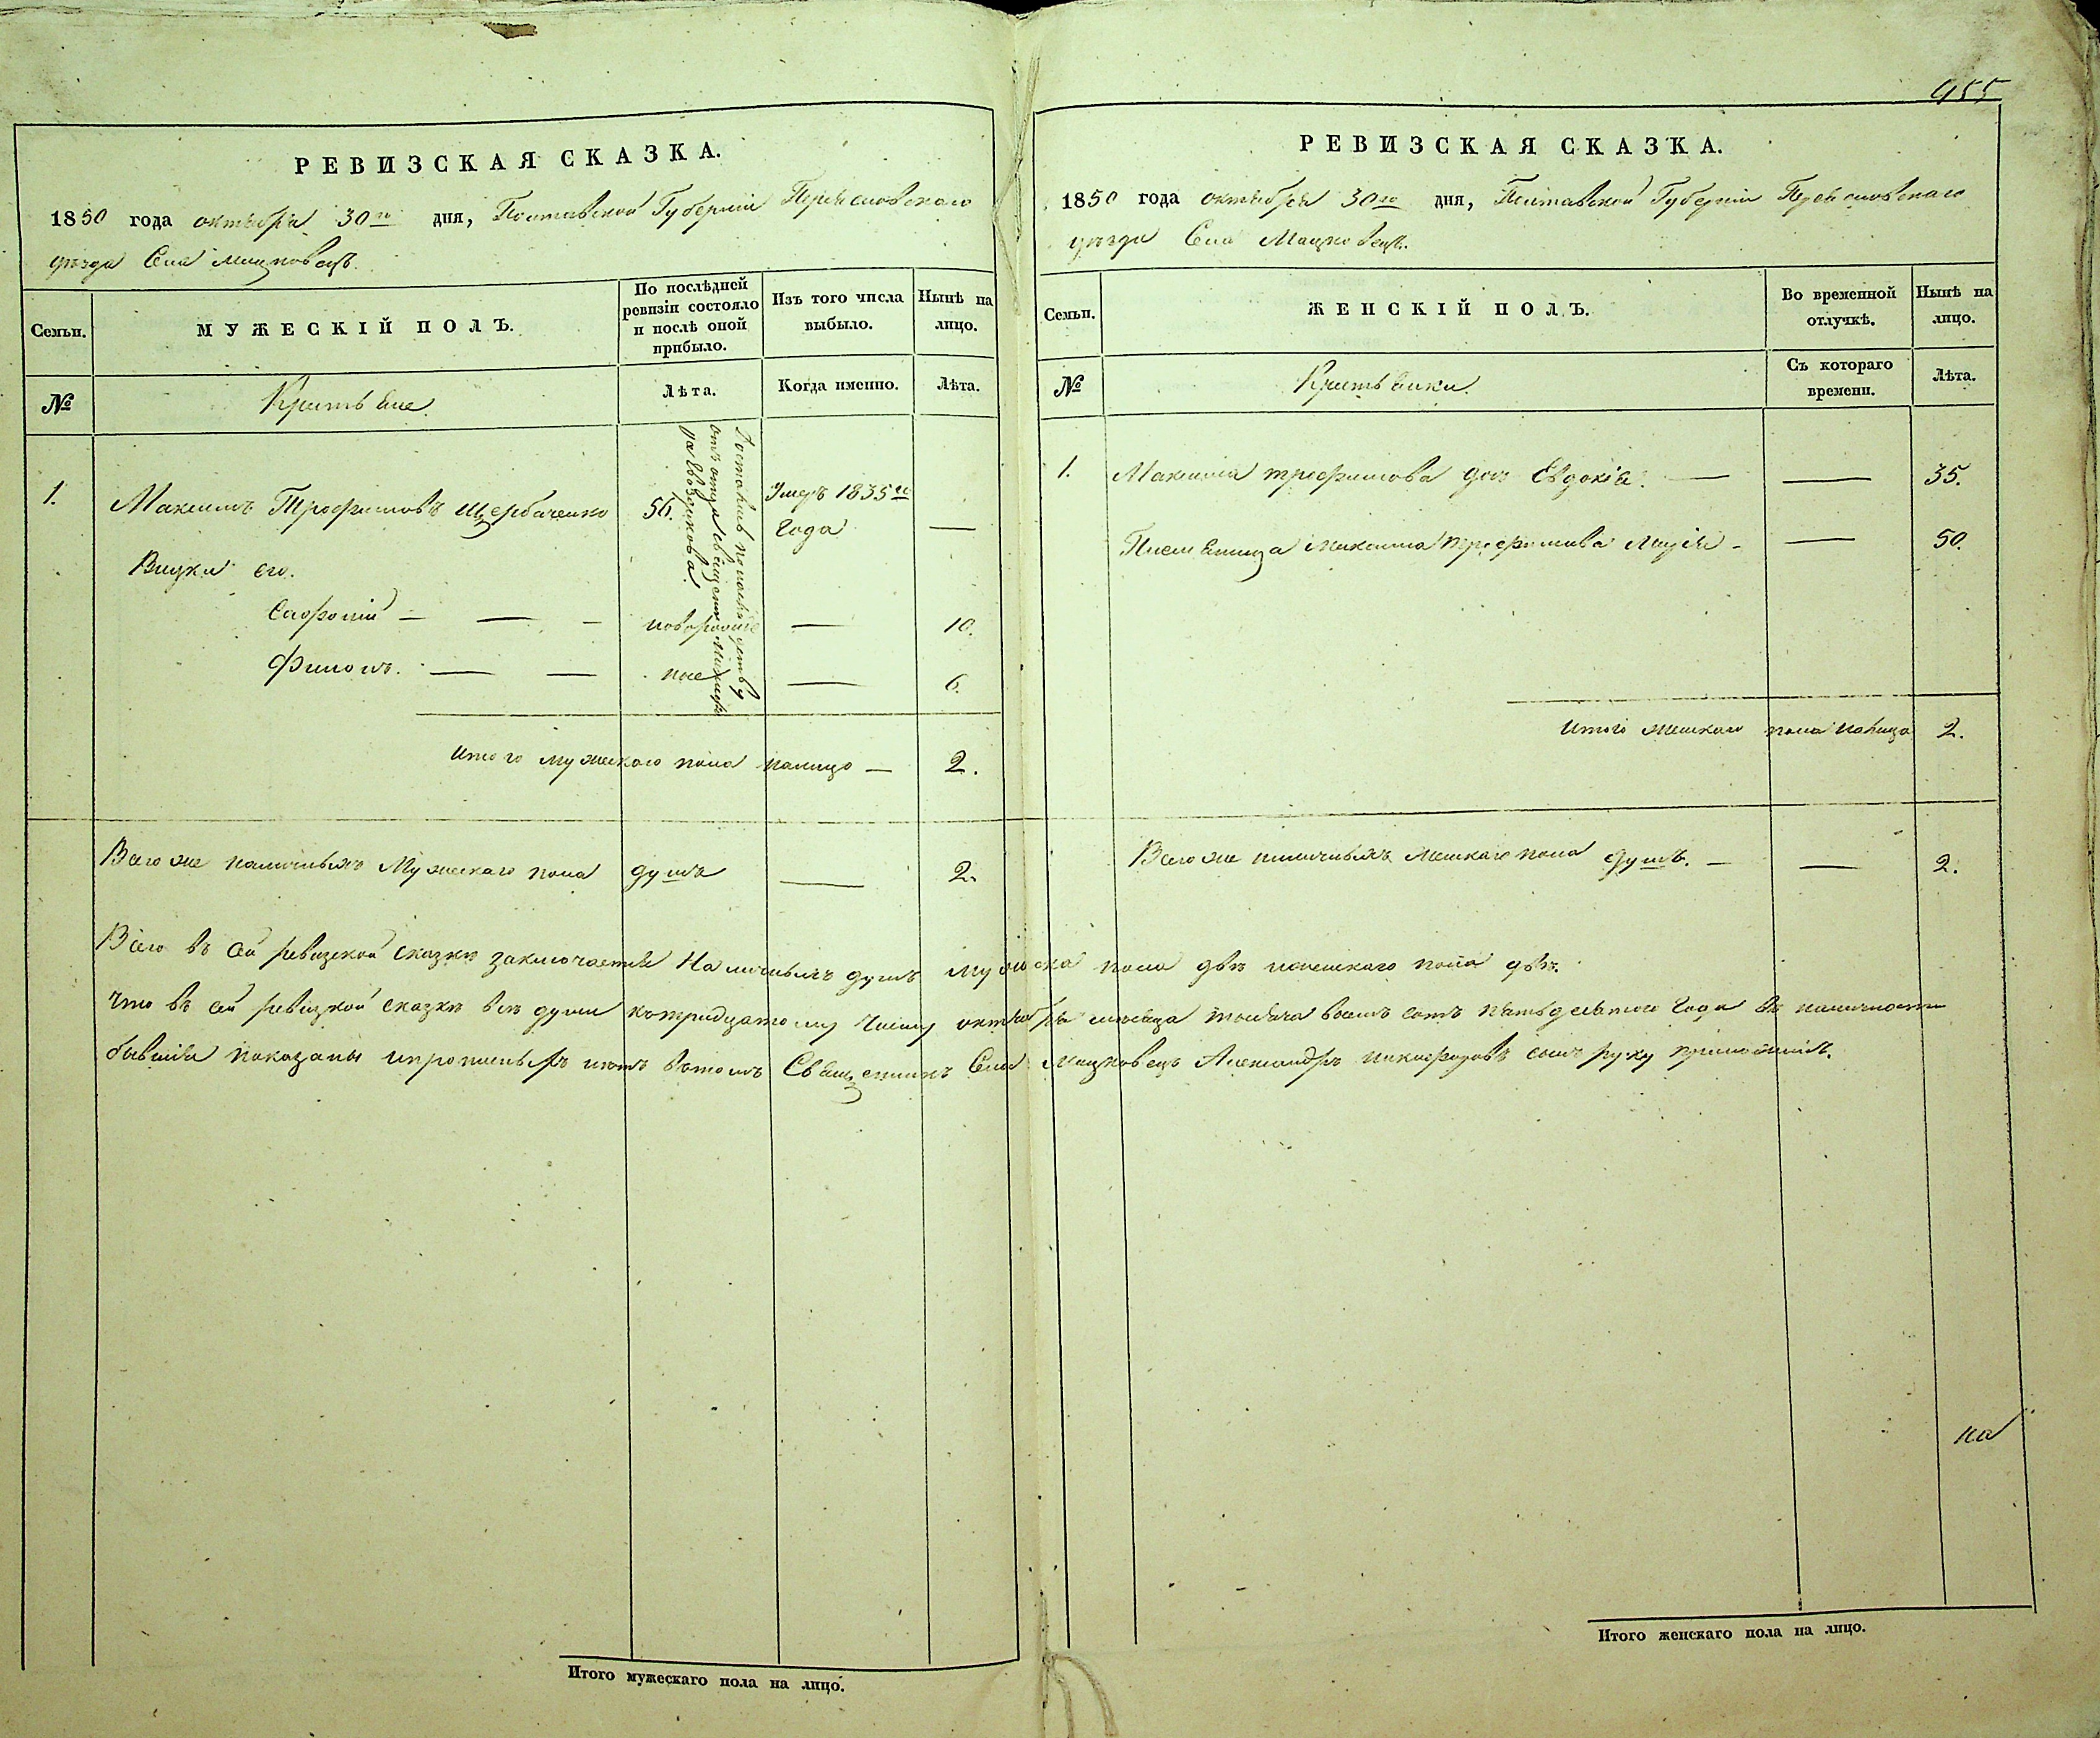 955
РЕВИЗСКАЯ СКАЗКА.
1850 года октября 30го дня, Полтавской Губерніи Переясловскаго
уѣзда Села Мацковецъ.
Семьи.
МУЖЕСКІЙ ПОЛЪ.
По послѣдней
ревизіи состояло
и послѣ оной
прибыло.
Изъ того числа
выбыло.
Нынѣ на
лицо.
№
Крестьяне.
Лѣта.
Когда именно.
Лѣта.
Достались по наследству
отъ отца священника
1.
Максимъ Трофимовъ Щербаченко
56.
Умеръ 1835го
Года
—
Внуки его.
Сафроній — — —
новорожде
—
10.
Филонъ. — —
ные
—
6.
Итого мужескаго пола налицо — 2.
Всего же наличныхъ Мужескаго пола душъ — 2.
РЕВИЗСКАЯ СКАЗКА.
1850 года октября 30го дня, Полтавской Губерніи Переясловскаго
уѣзда Села Мацковецъ.
Семьи.
ЖЕНСКІЙ ПОЛЪ.
Во временной
отлучкѣ.
Нынѣ на
лицо.
№
Крестьянки.
Съ котораго
времени.
Лѣта.
1. Максима Трофимова дочь Евдокія. — — 35.
Племянница Максима Трофимова Марія — — 50.
Итого женскаго пола налицо 2.
Всего же наличныхъ женскаго пола душъ. — — 2.
Всего въ сей ревизской сказкѣ заключается Наличныхъ душъ мужеска пола двѣ и женскаго пола двѣ.
Что въ сей ревизской сказкѣ всѣ души къ тридцатому числу октября мѣсяца тысяча восемъ сотъ пятьдесятого Года въ наличности
бывшія показаны и прописныхъ нѣтъ въ томъ Священникъ Села Мацковецъ Александръ Никифоровъ сынъ руку приложилъ.
на
Итого мужескаго пола на лицо.
Итого женскаго пола на лицо.